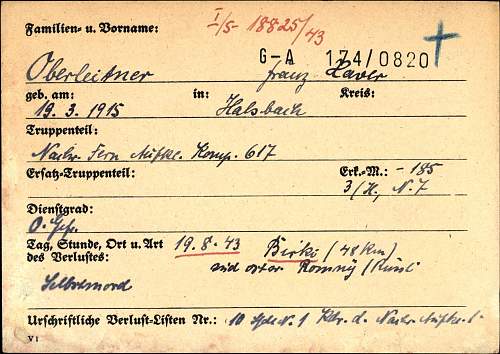 Familien- u. Vorname: I/5- 18825/43
G-A 174/0820
Oberleitner Franz Xaver
geb. am: in: Kreis:
19.3.1915 Halsbach
Truppenteil:
Nachr. Fern Aufkl. Komp. 617
Ersatz-Truppenteil: Erk.-M.: -185
3/H, N. 7
Dienstgrad:
O. Gefr.
Tag, Stunde, Ort u. Art 19.8.43 Birki (48 km)
des Verlustes: Romny
Selbstmord
Urschriftliche Verlust-Listen Nr.: 10 N. 1 d. Nachr. Aufkl.
VI